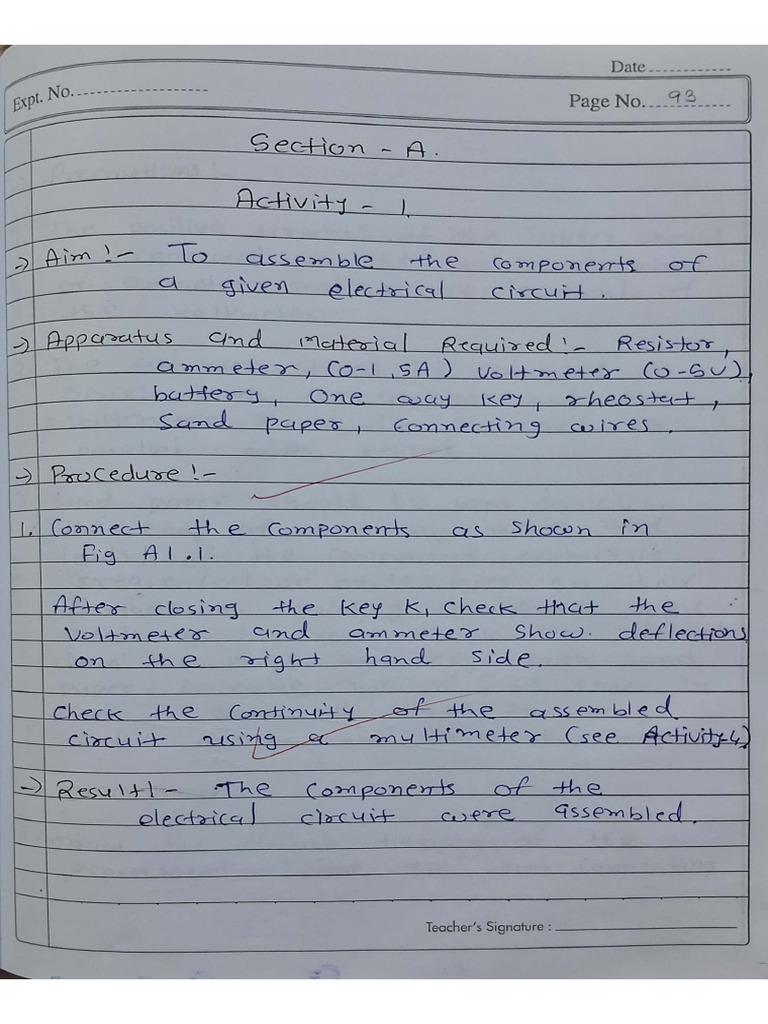 Date
Expt. No.
Page No. 93
Section - A.
Activity - 1.
→ Aim :- To assemble the components of
a given electrical circuit.
→ Apparatus and Material Required :- Resistor,
ammeter, (0-1.5A) Voltmeter (0-5V),
battery, One way key, rheostat,
Sand paper, Connecting wires.
→ Procedure :-
1. Connect the components as shown in
Fig A1.1.
After closing the key K, check that the
voltmeter and ammeter show deflections
on the right hand side.
Check the continuity of the assembled
circuit using a multimeter (see Activity 4)
→ Result :- The components of the
electrical circuit were assembled.
Teacher's Signature :